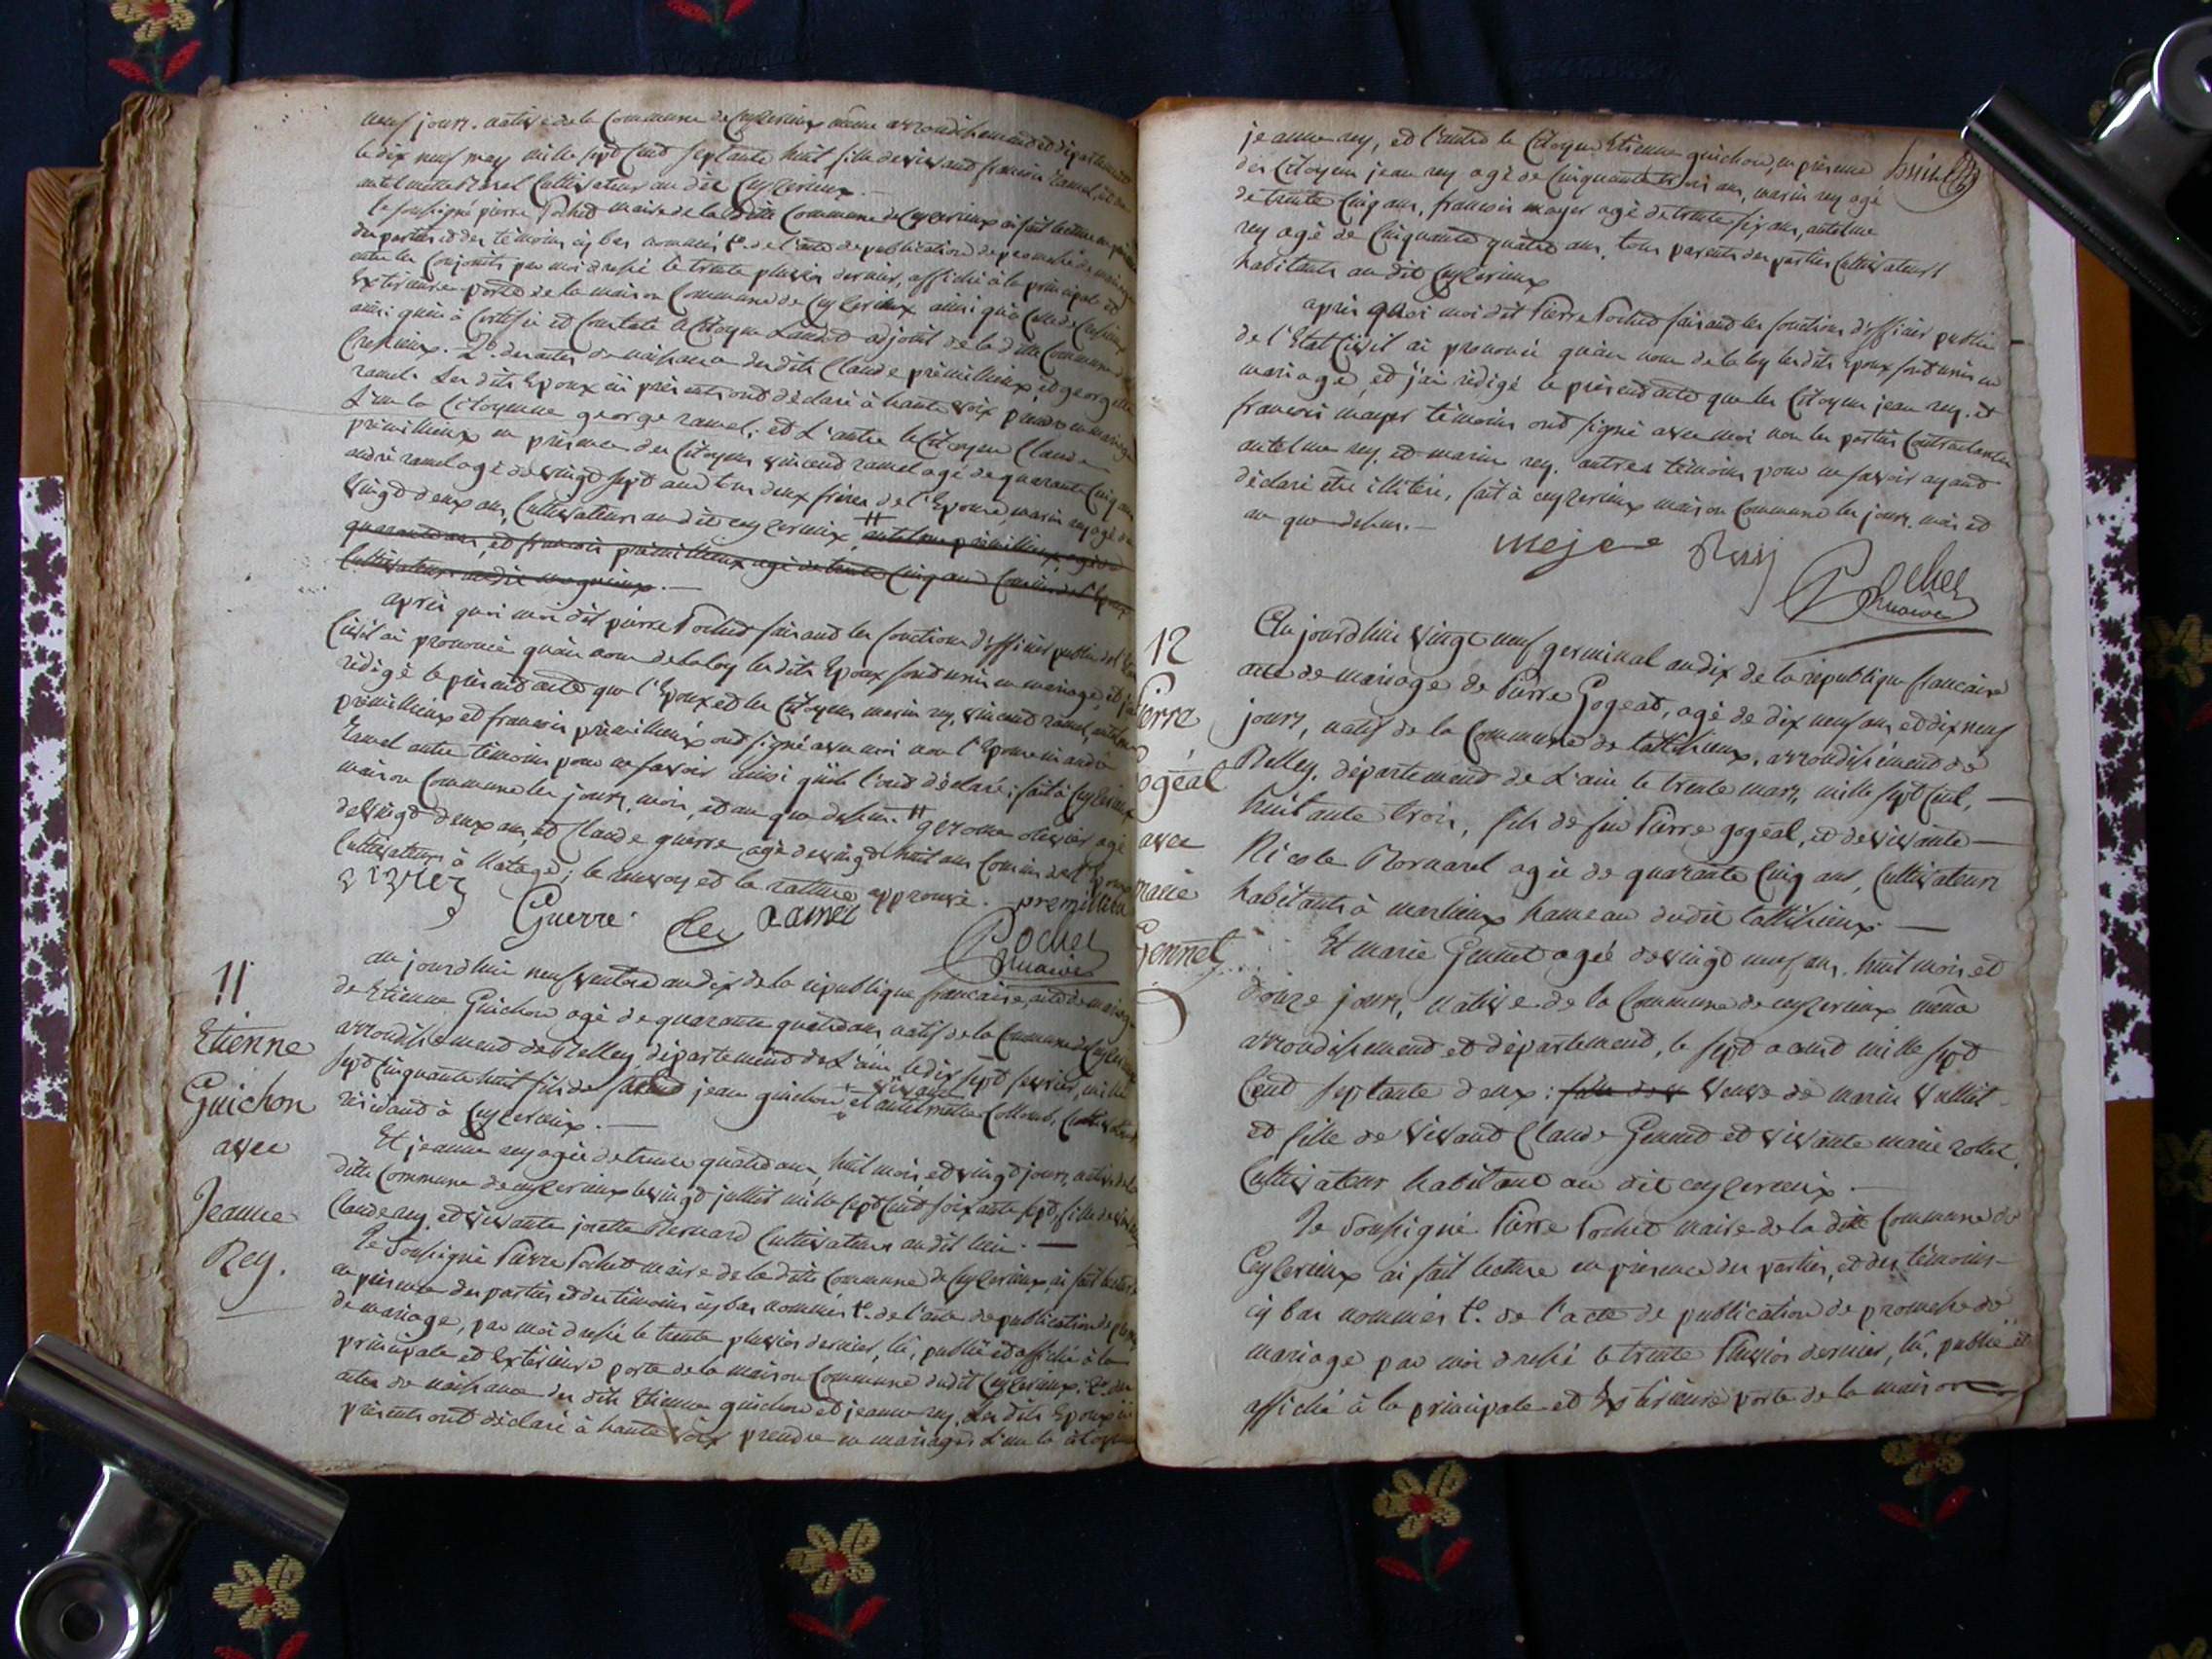 neuf jours. native de la Commune de Ceyzerieux même arrondissement et département
le dix neuf may mille sept cend septante huit fille de vivand francois Ramel, et de
antelmette Marel Cultivateurs au dit Ceyzerieux.
Je soussigné pierre Pochet maire de la ditte Commune de Ceyzerieux ai fait lecture en présence
des parties et des témoins cy bas nommés 1º. de l'acte de publication de promesse de mariage
entre les Conjoints par moi dressé le trente pluviôs dernier, affiché à la principale et
Extérieure porte de la maison Commune de Ceyzerieux ainsi qu'à celle de
ainsi quen à Certifié et Constaté le Citoyen adjoint de la ditte Commune de
2º. des actes de naissance des dits Claude prémillieux, et george
ramel. Les dits Epoux ici présents ont déclaré à haute voix prendre en mariage
L'un la Citoyenne george ramel; et L'autre le Citoyen Claude
prémillieux en présence des Citoyens vincend ramel agé de quarante Cinq ans
andré ramel agé de vingt sept ans tous deux frères de l'Epouse, marin rey agé de
vingt deux ans, Cultivateurs au dit ceyzerieux, # antelme prémillieux agé de
quarante ans, et francois prémillieux agé de trente Cinq ans Cousins de l'Epoux
Cultivateurs au dit
après quoi moi dit pierre Pochet faisand les fonctions d'officier public de l'Etat
Civil ai prononcé qu'au nom de la loy les dits Epoux sont unis en mariage, et j'ai
rédigé le présend acte que l'Epoux et les Citoyens marin rey, vincend ramel, antelme
prémillieux et francois prémillieux ont signé avec moi non l'Epouse ni andré
Ramel autre témoin pour ne savoir ainsi qu'ils l'ont déclaré; fait à Ceyzerieux
maison Commune les jours, mois, et an que dessus. # gerome olivier agé
de vingt deux ans, et Claude guerre agé de vingt huit ans Cousins de l'Epoux
Cultivateurs à Natage; le renvoy et la rature approuvé. premillieu
Guerre Rey Ramel
Pochet
maire
11
Etienne
Guichon
avec
Jeanne
Rey.
au jourdhui neuf ventose an dix de la république francaise, acte de mariage
de Etienne Guichon agé de quarante quatre ans, natif de la Commune de Ceyzerieux
arrondissement de Belley, département de L'ain le dix sept fevrier, mille
sept Cinquante huit fils de jean guichon et vivante antelmette Collomb, Cultivateurs
résidand à Ceyzerieux.
Et jeanne rey agée de trente quatre ans, huit mois, et vingt jours, native de la
ditte Commune de ceyzerieux le vingt juillet mille sept Cend soixante sept, fille de
Claude rey, et vivante josette Bernard Cultivateurs au dit lieu.
Je Soussigné Pierre Pochet maire de la ditte Commune de Ceyzerieux ai fait lecture
en présence des parties et des témoins cy bas nommés 1º. de l'acte de publication de promesse
de mariage, par moi dressé le trente pluviôs dernier, lû, publié et affiché à la
principale et Extérieure porte de la maison Commune du dit Ceyzerieux. 2º. des
actes de naissance des dits Etienne guichon et jeanne rey. Les dits Epoux ici
présents ont déclaré à haute voix prendre en mariage, L'un la citoyenne
jeanne rey, et l'autre le Citoyen Etienne guichon, en présence
des Citoyens jean rey agé de Cinquante trois ans, marin rey agé
de trente Cinq ans, francois mayer agé de trente six ans, antelme
rey agé de Cinquante quatre ans, tous parents des parties Cultivateurs
habitants au dit Ceyzerieux
après quoi moi dit Pierre Pochet faisand les fonctions d'officier public
de l'Etat Civil ai prononcé qu'au nom de la loy les dits Epoux sont unis en
mariage, et j'ai rédigé le présend acte que les Citoyens jean rey. et
francois mayer témoins ont signé avec moi non les parties Contractantes
antelme rey. et marin rey. autres témoins pour ne savoir ayand
déclaré être illitéré, fait à ceyzerieux maison Commune les jours, mois et
an que dessus.
Pochet
maire
12
Pierre
Gogéat
avec
marie
Gennet
Au jourdhui vingt neuf germinal an dix de la république francaise
acte de mariage de Pierre Gogeat, agé de dix neuf ans, et dix neuf
jours, natif de la Commune de tallissieux, arrondissement de
Belley, département de L'ain le trente mars, mille sept Cent,
huitante trois, fils de feu Pierre gogéat, et de vivante
Nicole Mornarel agée de quarante Cinq ans, Cultivateurs
habitants à marlieux hameau du dit tallissieux.
Et marie Gennet agée de vingt neuf ans, huit mois et
douze jours, native de la Commune de ceyzerieux même
arrondissement et département, le sept aoust mille sept
Cent septante deux: fille de v veuve de marin vulliet
et fille de vivand Claude Gennet et vivante marie rollet
Cultivateur habitant au dit ceyzerieux.
Je soussigné Pierre Pochet maire de la ditte Commune de
Ceyzerieux ai fait lecture en présence des parties, et des témoins
cy bas nommés 1º. de l'acte de publication de promesse de
mariage par moi dressé le trente Pluviôs dernier, lû, publié et
affiché à la principale et Extérieure porte de la maison